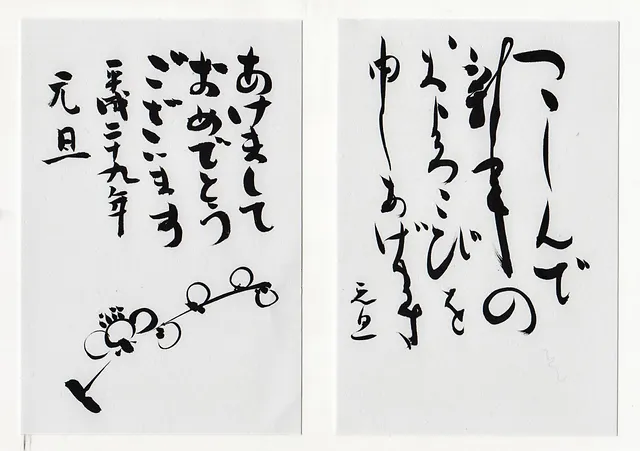 つゝしんで
新年の
およろこびを
申しあげます
元旦
あけまして
おめでとう
ございます
平成二十九年
元旦